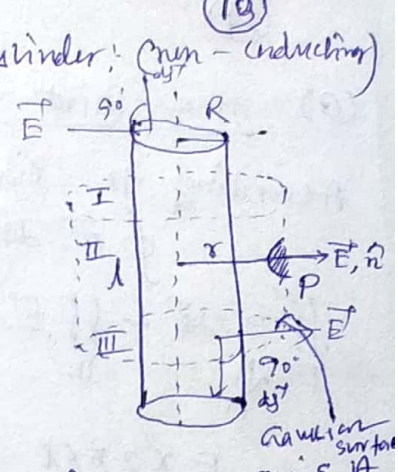 19
ylinder: (non-conducting)
ds⃗
90°
E⃗
R
I
II
l
r
E⃗, n̂
P
E⃗
III
90°
ds⃗
Gaussian
surface